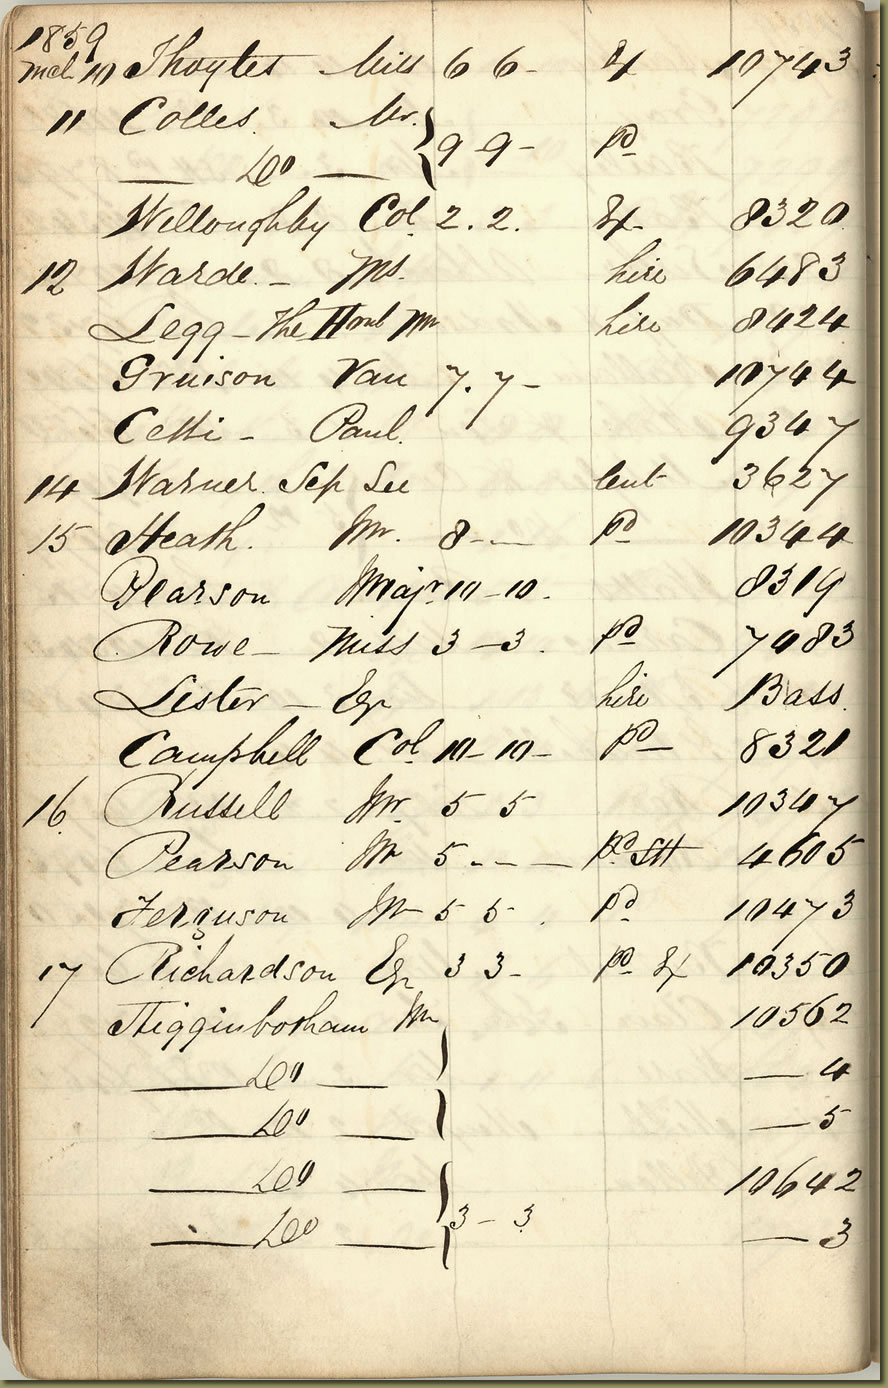 1859
Mch 10 Thoytes Miss 6 6 - Ex 10743
11 Colles. Mr.
— Do — 9 9 - pd
Willoughby Col. 2. 2. Ex. 8320
12 Warde. - Ms. hire 6483
Legg - The Honl Mr hire 8424
Gruison Van 7. 7 - 10744
Cetti - Paul. 9347
14 Warner. Sep See lent 3627
15 Heath. Mr. 8 - — pd 10344
Pearson Majr 10 - 10. 8319
Rowe - Miss 3 - 3. pd 7083
Lister - Eqr hire Bass.
Campbell Col. 10 - 10 - pd - 8321
16. Russell Mr. 5 5 10347
Pearson Mr 5 - - — pd 4605
Ferguson Mr 5 5. pd 10473
17 Richardson Eqr 3 3 - pd Ex 10350
Higginbotham Mr 10562
— Do — — 4
— Do — — 5
— Do — 10642
— Do — 3 - 3 — 3